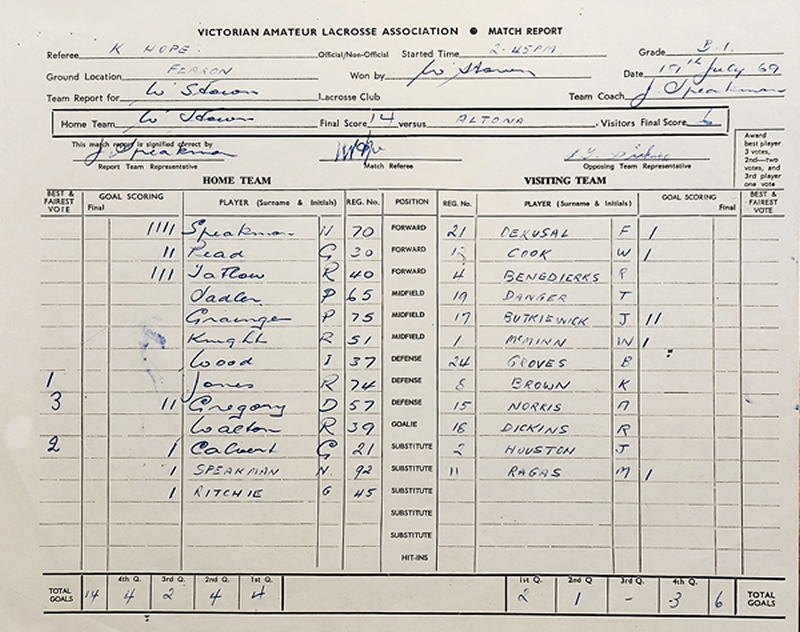 VICTORIAN AMATEUR LACROSSE ASSOCIATION ● MATCH REPORT
Referee K HOPE. Official/Non-Official Started Time 2-45PM. Grade B.1.
Ground Location FEARON Won by W'Stown Date 19th July 69
Team Report for W'Stown Lacrosse Club Team Coach J Speakman
Home Team W'Stown Final Score 14 versus ALTONA , Visitors Final Score 6
This match report is signified correct by
J Speakman
Report Team Representative Match Referee Opposing Team Representative
Award best player 3 votes, 2nd—two votes, and 3rd player one vote
HOME TEAM VISITING TEAM
BEST & FAIREST VOTE GOAL SCORING Final PLAYER (Surname & Initials) REG. No. POSITION REG. No. PLAYER (Surname & Initials) GOAL SCORING Final BEST & FAIREST VOTE
IIII Speakman 70 FORWARD 21 DEKUSAL F I
II Read G 30 FORWARD COOK W I
III Tatlow R 40 FORWARD 4 BENEDIERKS R
Sadler P 65 MIDFIELD 19 DANGER T
Grainger P 75 MIDFIELD 17 BUTKIEWICK J II
Knight R 51 MIDFIELD 1 McMINN W I
Wood I 37 DEFENSE 24 GROVES B
1 Jones R 74 DEFENSE 8 BROWN K
3 II Gregory D 57 DEFENSE 15 NORRIS
Walton R 39 GOALIE 16 DICKINS R
2 I Calvert G 21 SUBSTITUTE 2 HOUSTON J
I SPEAKMAN N. 92 SUBSTITUTE 11 RAGAS M I
I RITCHIE G 45 SUBSTITUTE
SUBSTITUTE
SUBSTITUTE
HIT-INS
TOTAL GOALS 14 4th Q. 4 3rd Q. 2 2nd Q. 4 1st Q. 4 1st Q. 2 2nd Q 1 3rd Q. - 4th Q. 3 6 TOTAL GOALS